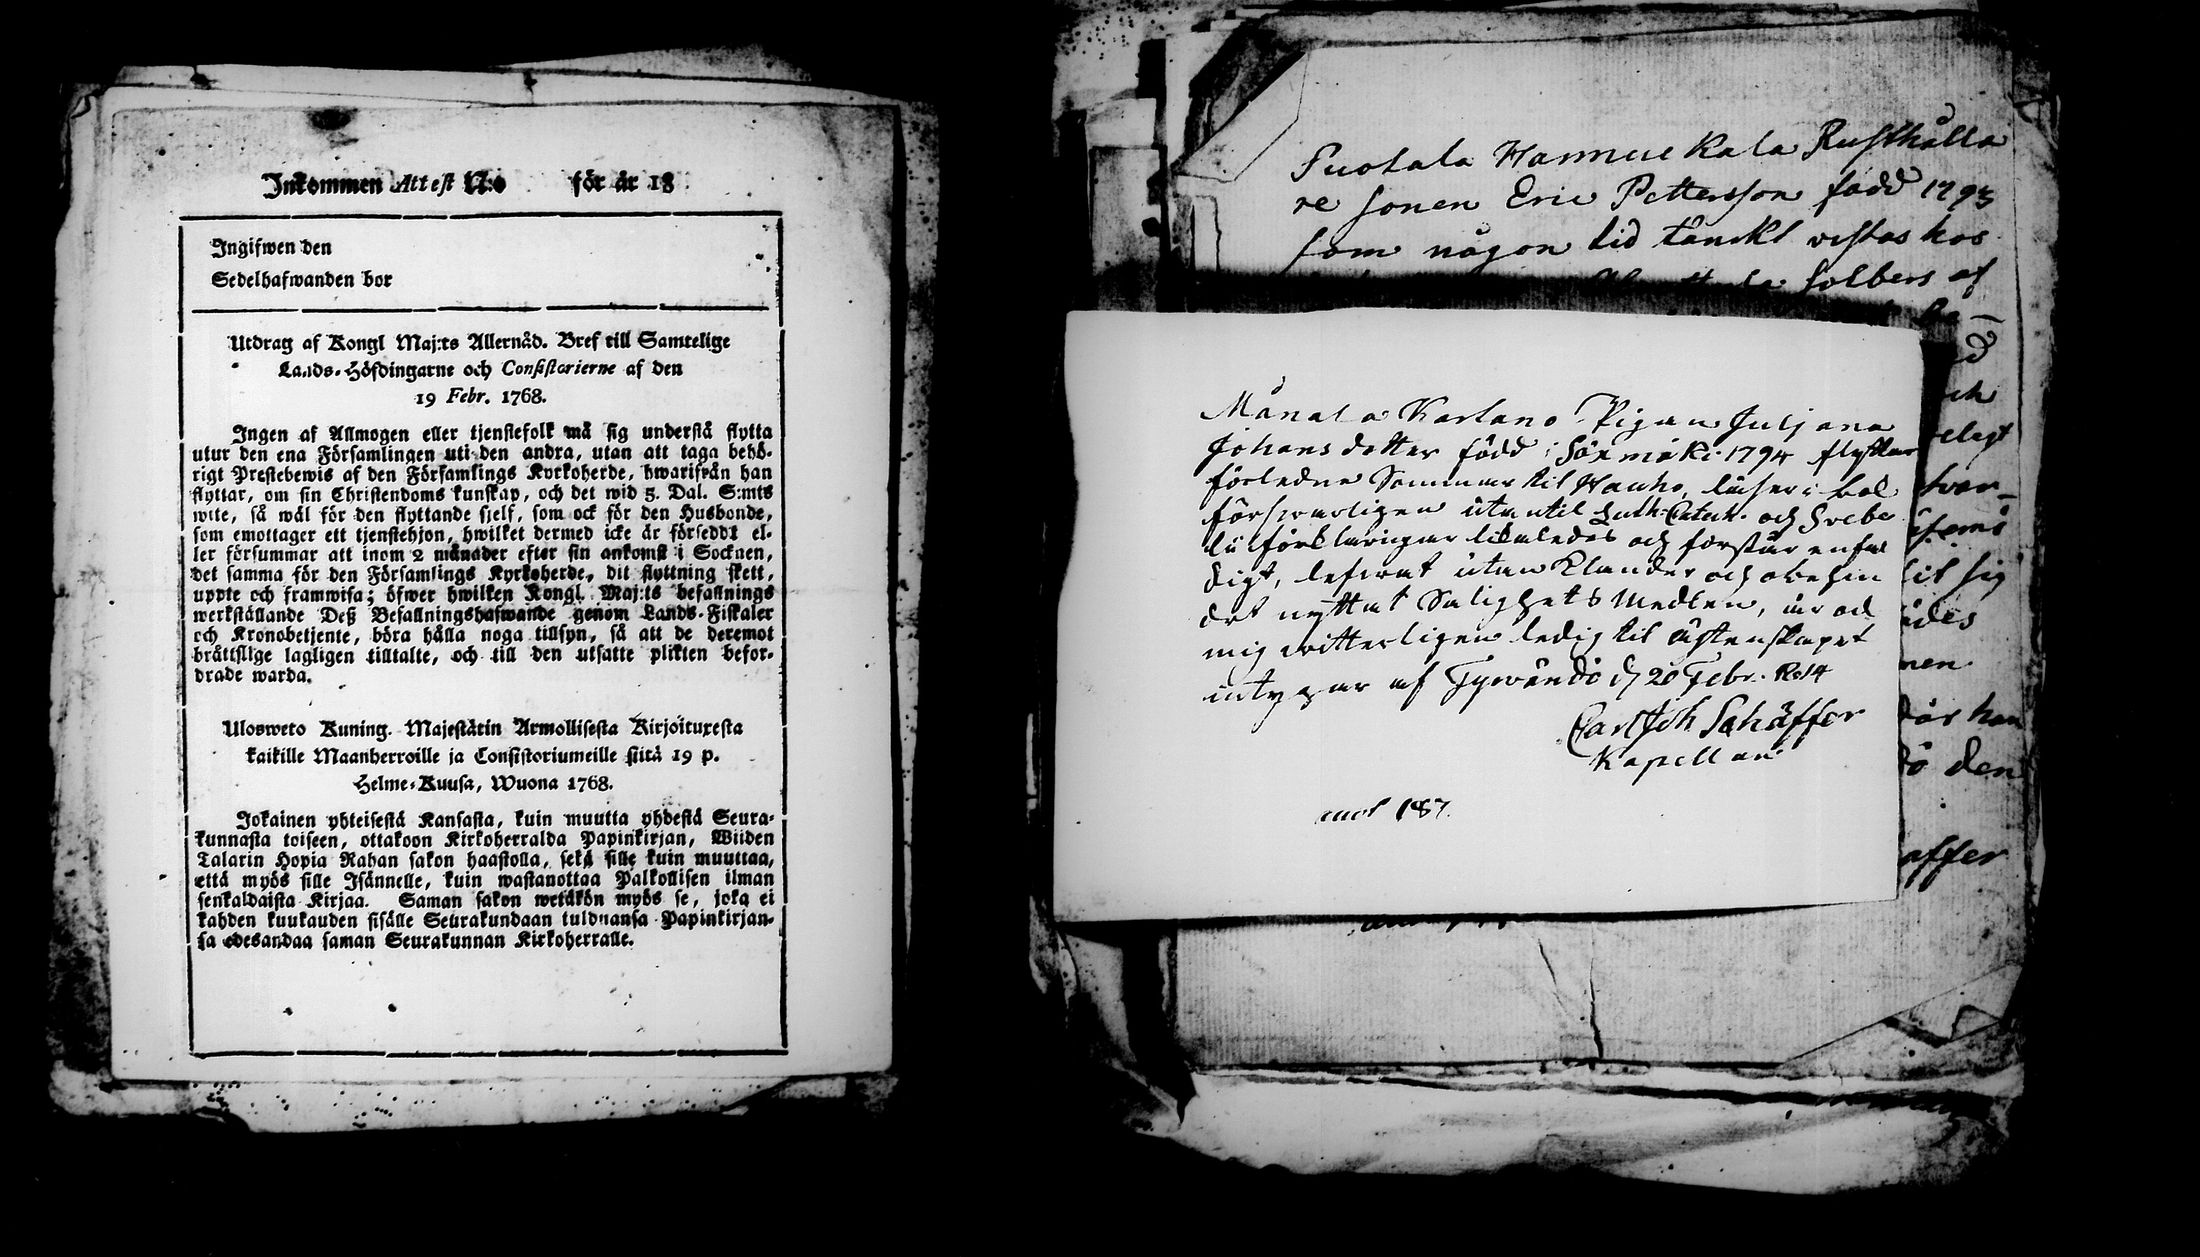 Inkommen Attest N:o för år 18
Ingifwen den
Sedelhafwanden bor
Utdrag af Kongl Maj:ts Allernåd. Bref till Samtelige
Lands-Höfdingarne och Consistorierne af den
19 Febr. 1768.
Ingen af Allmogen eller tjenstefolk må sig understå flytta
utur den ena Församlingen uti den andra, utan att taga behö-
rigt Prestebewis af den Församlings Kyrkoherde, hwarifrån han
flyttar, om sin Christendoms kunskap, och det wid 5. Dal. S:mts
wite, så wäl för den flyttande sjelf, som ock för den Husbonde,
som emottager ett tjenstehjon, hwilket dermed icke är förseddt el-
ler försummar att inom 2 månader efter sin ankomst i Socknen,
det samma för den Församlings Kyrkoherde, dit flyttning skett,
uppte och framwisa; öfwer hwilken Kongl. Maj:ts befallnings
werkställande Deß Befallningshafwande genom Lands-Fiskaler
och Kronobetjente, böra hålla noga tillsyn, så att de deremot
bråttslige lagligen tilltalte, och till den utsatte plikten befor-
drade warda.
Ulosweto Kuning. Majestätin Armollisesta Kirjoituxesta
kaikille Maanherroille ja Consistoriumeille siitä 19 p.
Helme-Kuusa, Wuona 1768.
Jokainen yhteisestä Kansasta, kuin muutta yhdestä Seura-
kunnasta toiseen, ottakoon Kirkoherralda Papinkirjan, Wiiden
Talarin Hopia Rahan sakon haastolla, sekä sille kuin muuttaa,
että myös sille Isännelle, kuin wastanottaa Palkollisen ilman
senkaldaista Kirjaa. Saman sakon wetäkön myös se, joka ei
kahden kuukauden sisälle Seurakundaan tulduansa Papinkirjan-
sa edesandaa saman Seurakunnan Kirkoherralle.
Puotala Hannukala Rusthålla
re sonen Eric Pettersson född 1793
som någon tid tänckt vistas hos
Solbers af
Månala Karlano Pigan Juljana
Johans dotter född i Säxmäki 1794 flyttar
förledne Sommar til Hauho, läser i bok
förswarligen utantil Luth. Catech. och Svebe
lii förklaringar likaledes och förstår enfal
digt, lefwat utan klander och obehin
drt nyttat Salighets Medlen, är od
mig witterligen ledig til ägtenskapet
intygar af Tyrvändö d 20 Febr. 1814
Carl Joh Schäffer
Kapellan
uch
relagt
twar-
til sig
nen
där han
den
affer